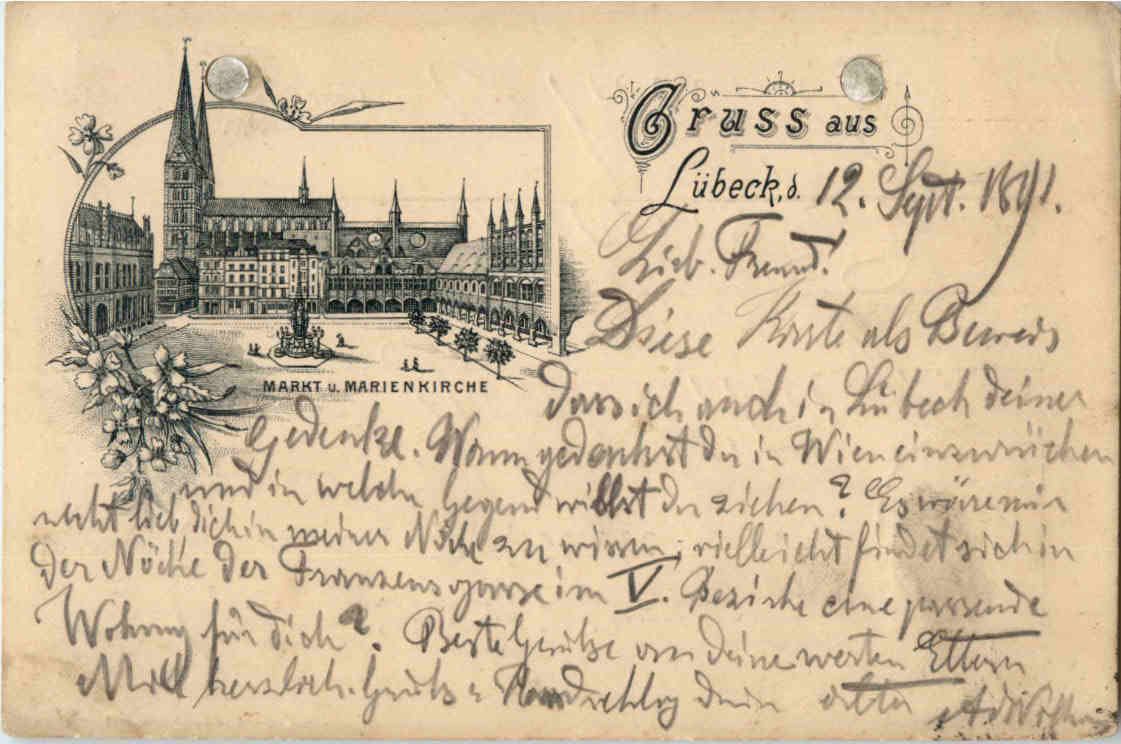 Gruss aus
Lübeck, d. 12. Sept. 1891.
Lieb. Freund!
Diese Karte als Beweis
MARKT u. MARIENKIRCHE
dass ich auch in Lübeck deiner
Gedenke. Wann gedenkst Du in Wien einzurücken
und in welcher Gegend willst Du ziehen? Es wäre mir
recht lieb dich in meiner Nähe zu wissen, vielleicht findet sich in
der Nähe der Franzensgasse im V. Bezirke eine passende
Wohnung für dich? Beste Grüsse an deine werten Eltern
Mit herzlich. Gruss & Handschlag dein alter